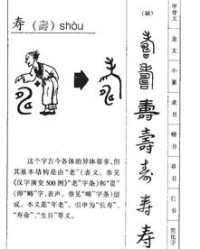 寿（壽）shòu
这个字古今各体的异体很多，但
其基本结构是由“老”（表义，参见
《汉字演变500例》“老”字条）和“𠷎”
（即“畴”字，表声，参见“畴”字条）组
成。本义是“年老”。引申为“长寿”、
“寿命”、“生日”等义。
（缺）
壽
壽
寿
寿
寿
甲骨文
金文
小篆
隶书
楷书
草书
行书
简化字